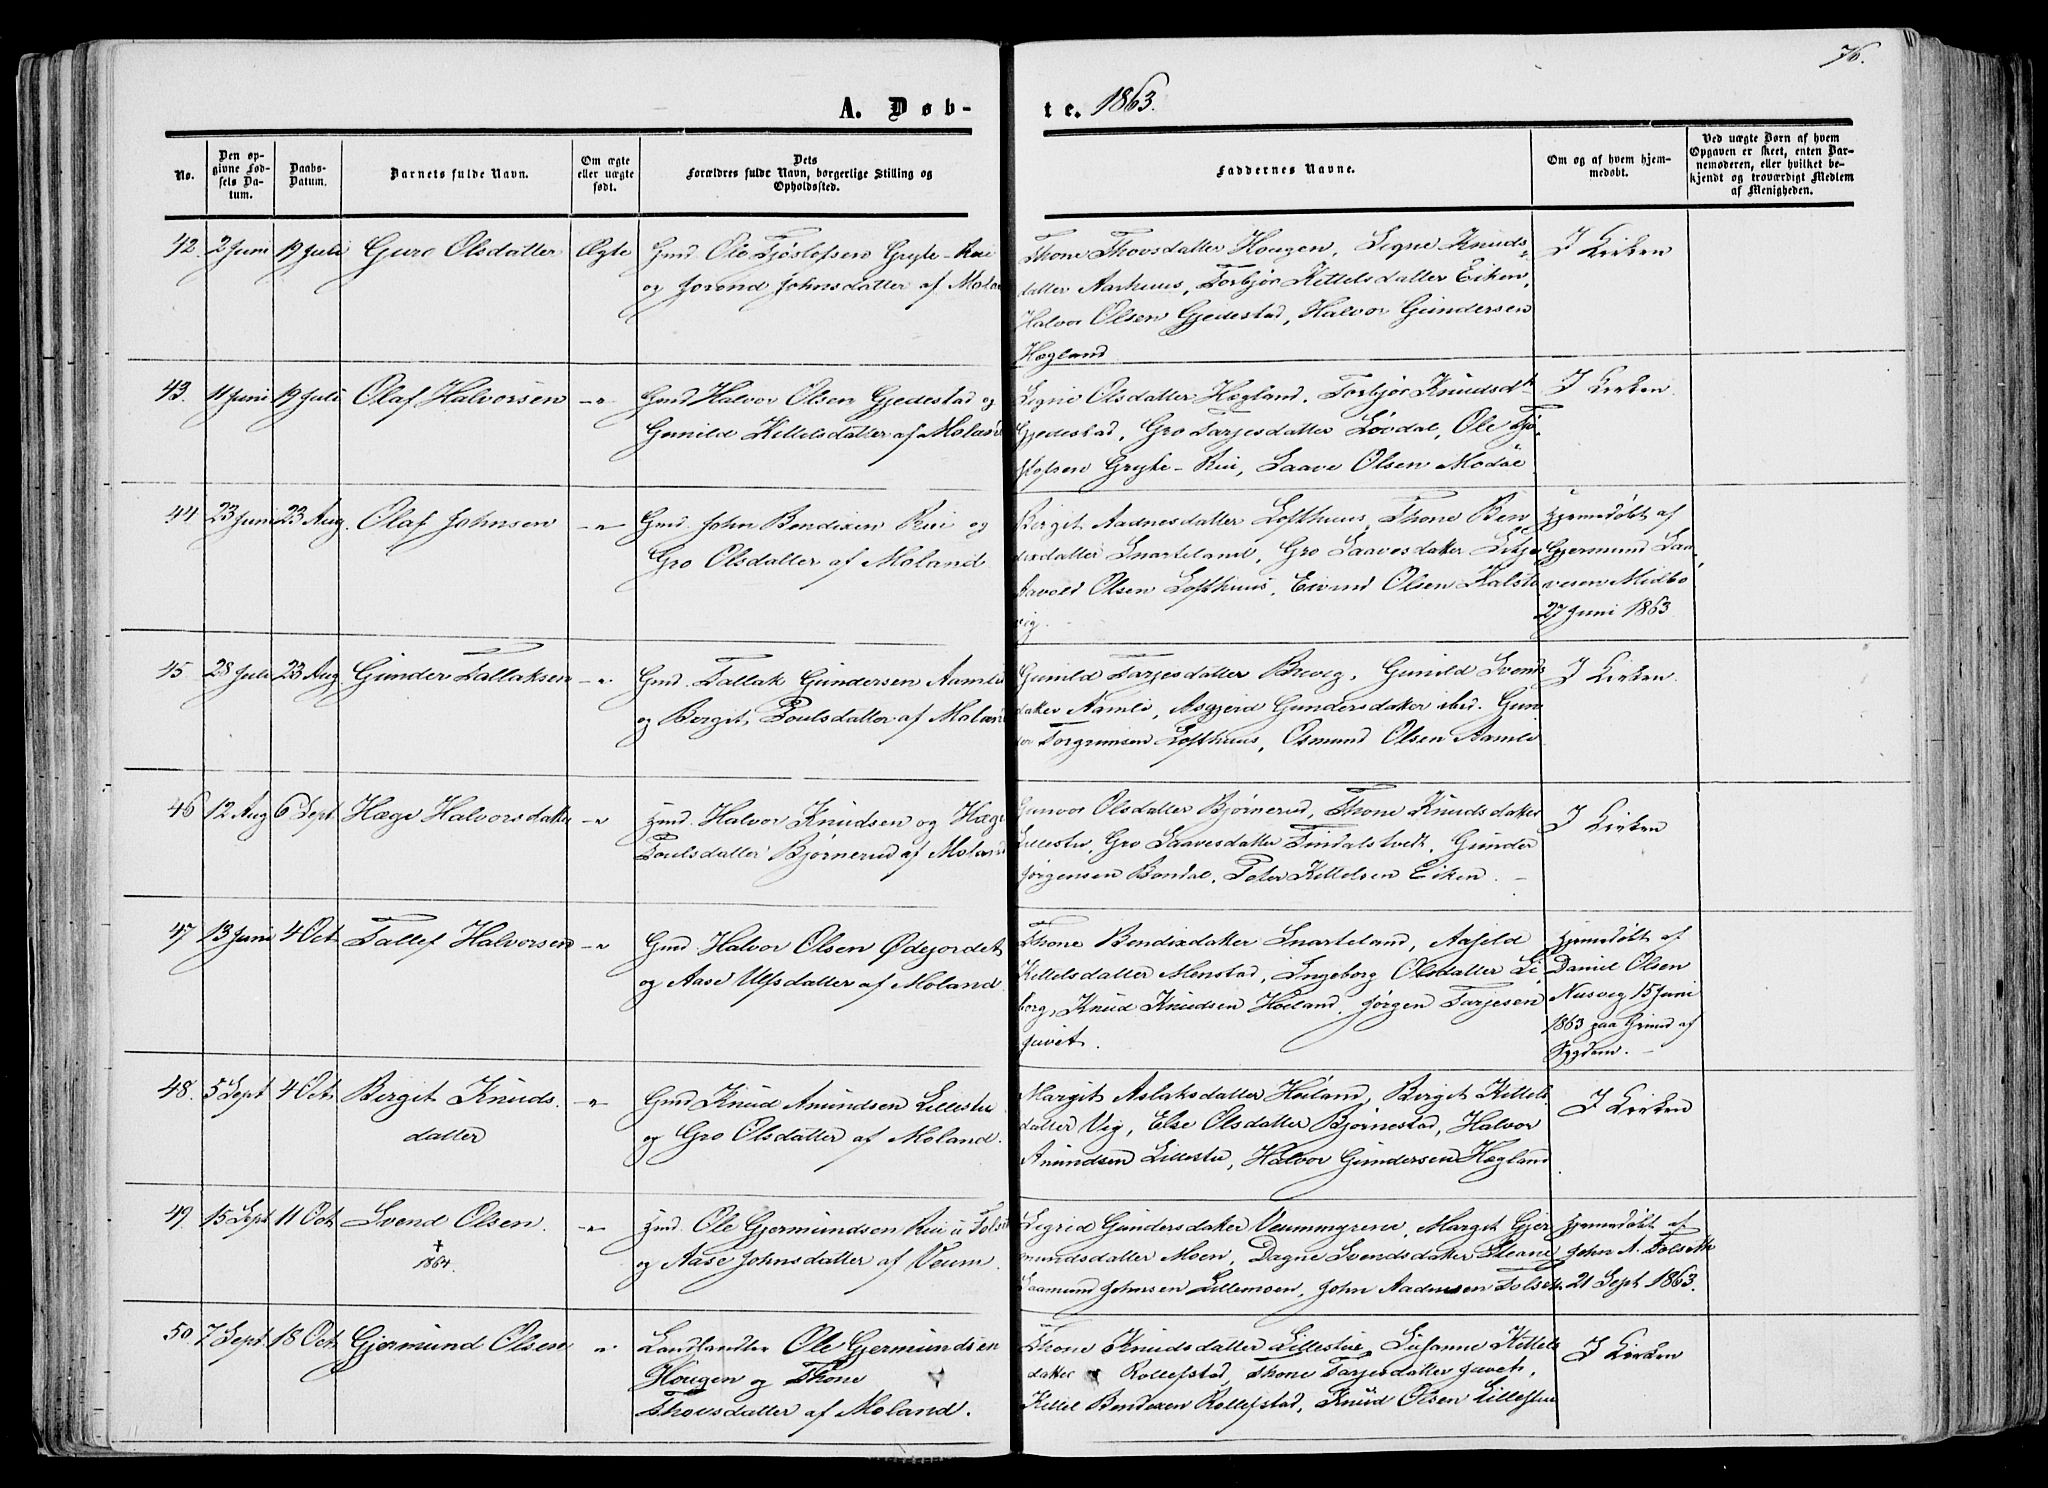 76.
A. Døb-te. 1863.
No.
Den opgivne Fødsels Datum.
Daabs-Datum.
Barnets fulde Navn.
Om ægte eller uægte født.
Dets Forældres fulde Navn, borgerlige Stilling og Opholdssted.
Faddernes Navne.
Om og af hvem hjemmedøbt.
Ved uægte Børn af hvem Opgaven er skeet, enten Barnemoderen, eller hvilket bekjendt og troværdigt Medlem af Menigheden.
42. 2 Juni 19 Juli Guro Olsdatter Ægte Gmd. Ole Tjøstofsen Gryte-Rui
og Jorond Johnsdatter af Molan
Thone Thovsdatter Hougen, Signe Knuds-
datter Aarhuus, Torbjør Kittelsdatter Eiken,
Halvor Olsen Gjedestad, Halvor Gundersen
Hægland
I Kirken
43. 11 Juni 19 Juli Olaf Halvorsen -"- Gmd Halvor Olsen Gjedestad og
Gunild Kittelsdatter af Moland
Signe Olsdatter Hægland, Torbjør Knudsdtr
Gjedestad, Gro Tarjesdatter Løvdal, Ole Tjø-
stofsen Gryte-Rui, Saave Olsen Modal
I Kirken.
44 23 Juni 23 Aug. Olaf Johnsen -"- Gmd. John Bendixen Rui og
Gro Olsdatter af Moland
Birgit Aadnesdatter Lofthuus, Thone Ben
dixdatter Snarteland, Gro Saavesdatter
Tarald Olsen Lofthuus, Eivind Olsen Kalsta
vig.
Hjemmedøbt af
Gjermund Saa-
vesen Midbø
27 Juni 1863
45 28 Juli 23 Aug Gunder Tallaksen -"- Gmd. Tallak Gundersen Aamli
og Bergit Poulsdatter af Moland
Gunild Tarjesdatter Brevig, Gunild Svends
datter Aamli, Asgjerd Gundersdatter ibid. Gun
der Torgrimsen Lofthuus, Osmund Olsen Aamli
I Kirken.
46 12 Aug 6 Sept. Hæge Halvorsdatter -"- Hmd. Halvor Knudsen og Hæge
Poulsdatter Bjørnerud af Moland
Gunvor Olsdatter Bjørnerud, Thone Knudsdatter
Lillestu, Gro Saavesdatter Tindalstvedt, Gunder
Jørgensen Bondal, Peter Kittelsen Eiken.
I Kirken
47 13 Juni 4 Oct Tallef Halvorsen -"- Gmd. Halvor Olsen Ødejordet
og Aase Ulfsdatter af Moland
Thone Bendixdatter Snarteland, Aaseld
Kittelsdatter Menstad, Ingeborg Olsdatter Li
borg, Knud Knudsen Høiland, Jørgen Tarjesen
Juvet.
Hjemmedøbt af
Daniel Olsen
Nusvig 15 Juni
1863 paa Grund af
Sygdom.
48. 5 Sept 4 Oct. Birgit Knuds-
datter
-"- Gmd Knud Amundsen Lillestu
og Gro Olsdatter af Moland.
Margit Aslaksdatter Høiland, Birgit Kittels
datter Vig, Else Olsdatter Bjørnestad, Halvor
Amundsen Lillestu, Halvor Gundersen Hægland
I Kirken
49. 15 Sept 11 Oct Svend Olsen.
† 1864.
-"- Hmd. Ole Gjermundsen Rui u. Folse
og Aase Johnsdatter af Veum.
Sigrid Gundersdatter Veummyrene, Margit Gjer
mundsdatter Moen, Dagne Svendsdatter
Saamund Johnsen Lillemoen, John Aadnesen Folseth
Hjemmedøbt af
John A. Folseth
21 Sept 1863.
50 7 Sept. 18 Oct. Gjermund Olsen " Landhandler Ole Gjermundsen
Hougen og Thone
Thovsdatter af Moland.
Thone Knudsdatter Lillestue, Susanne Kittels
datter Rollefstad, Thone Tarjesdatter Juvet,
Kittel Bendixen Rollefstad, Knud Olsen Lillestue
I Kirken